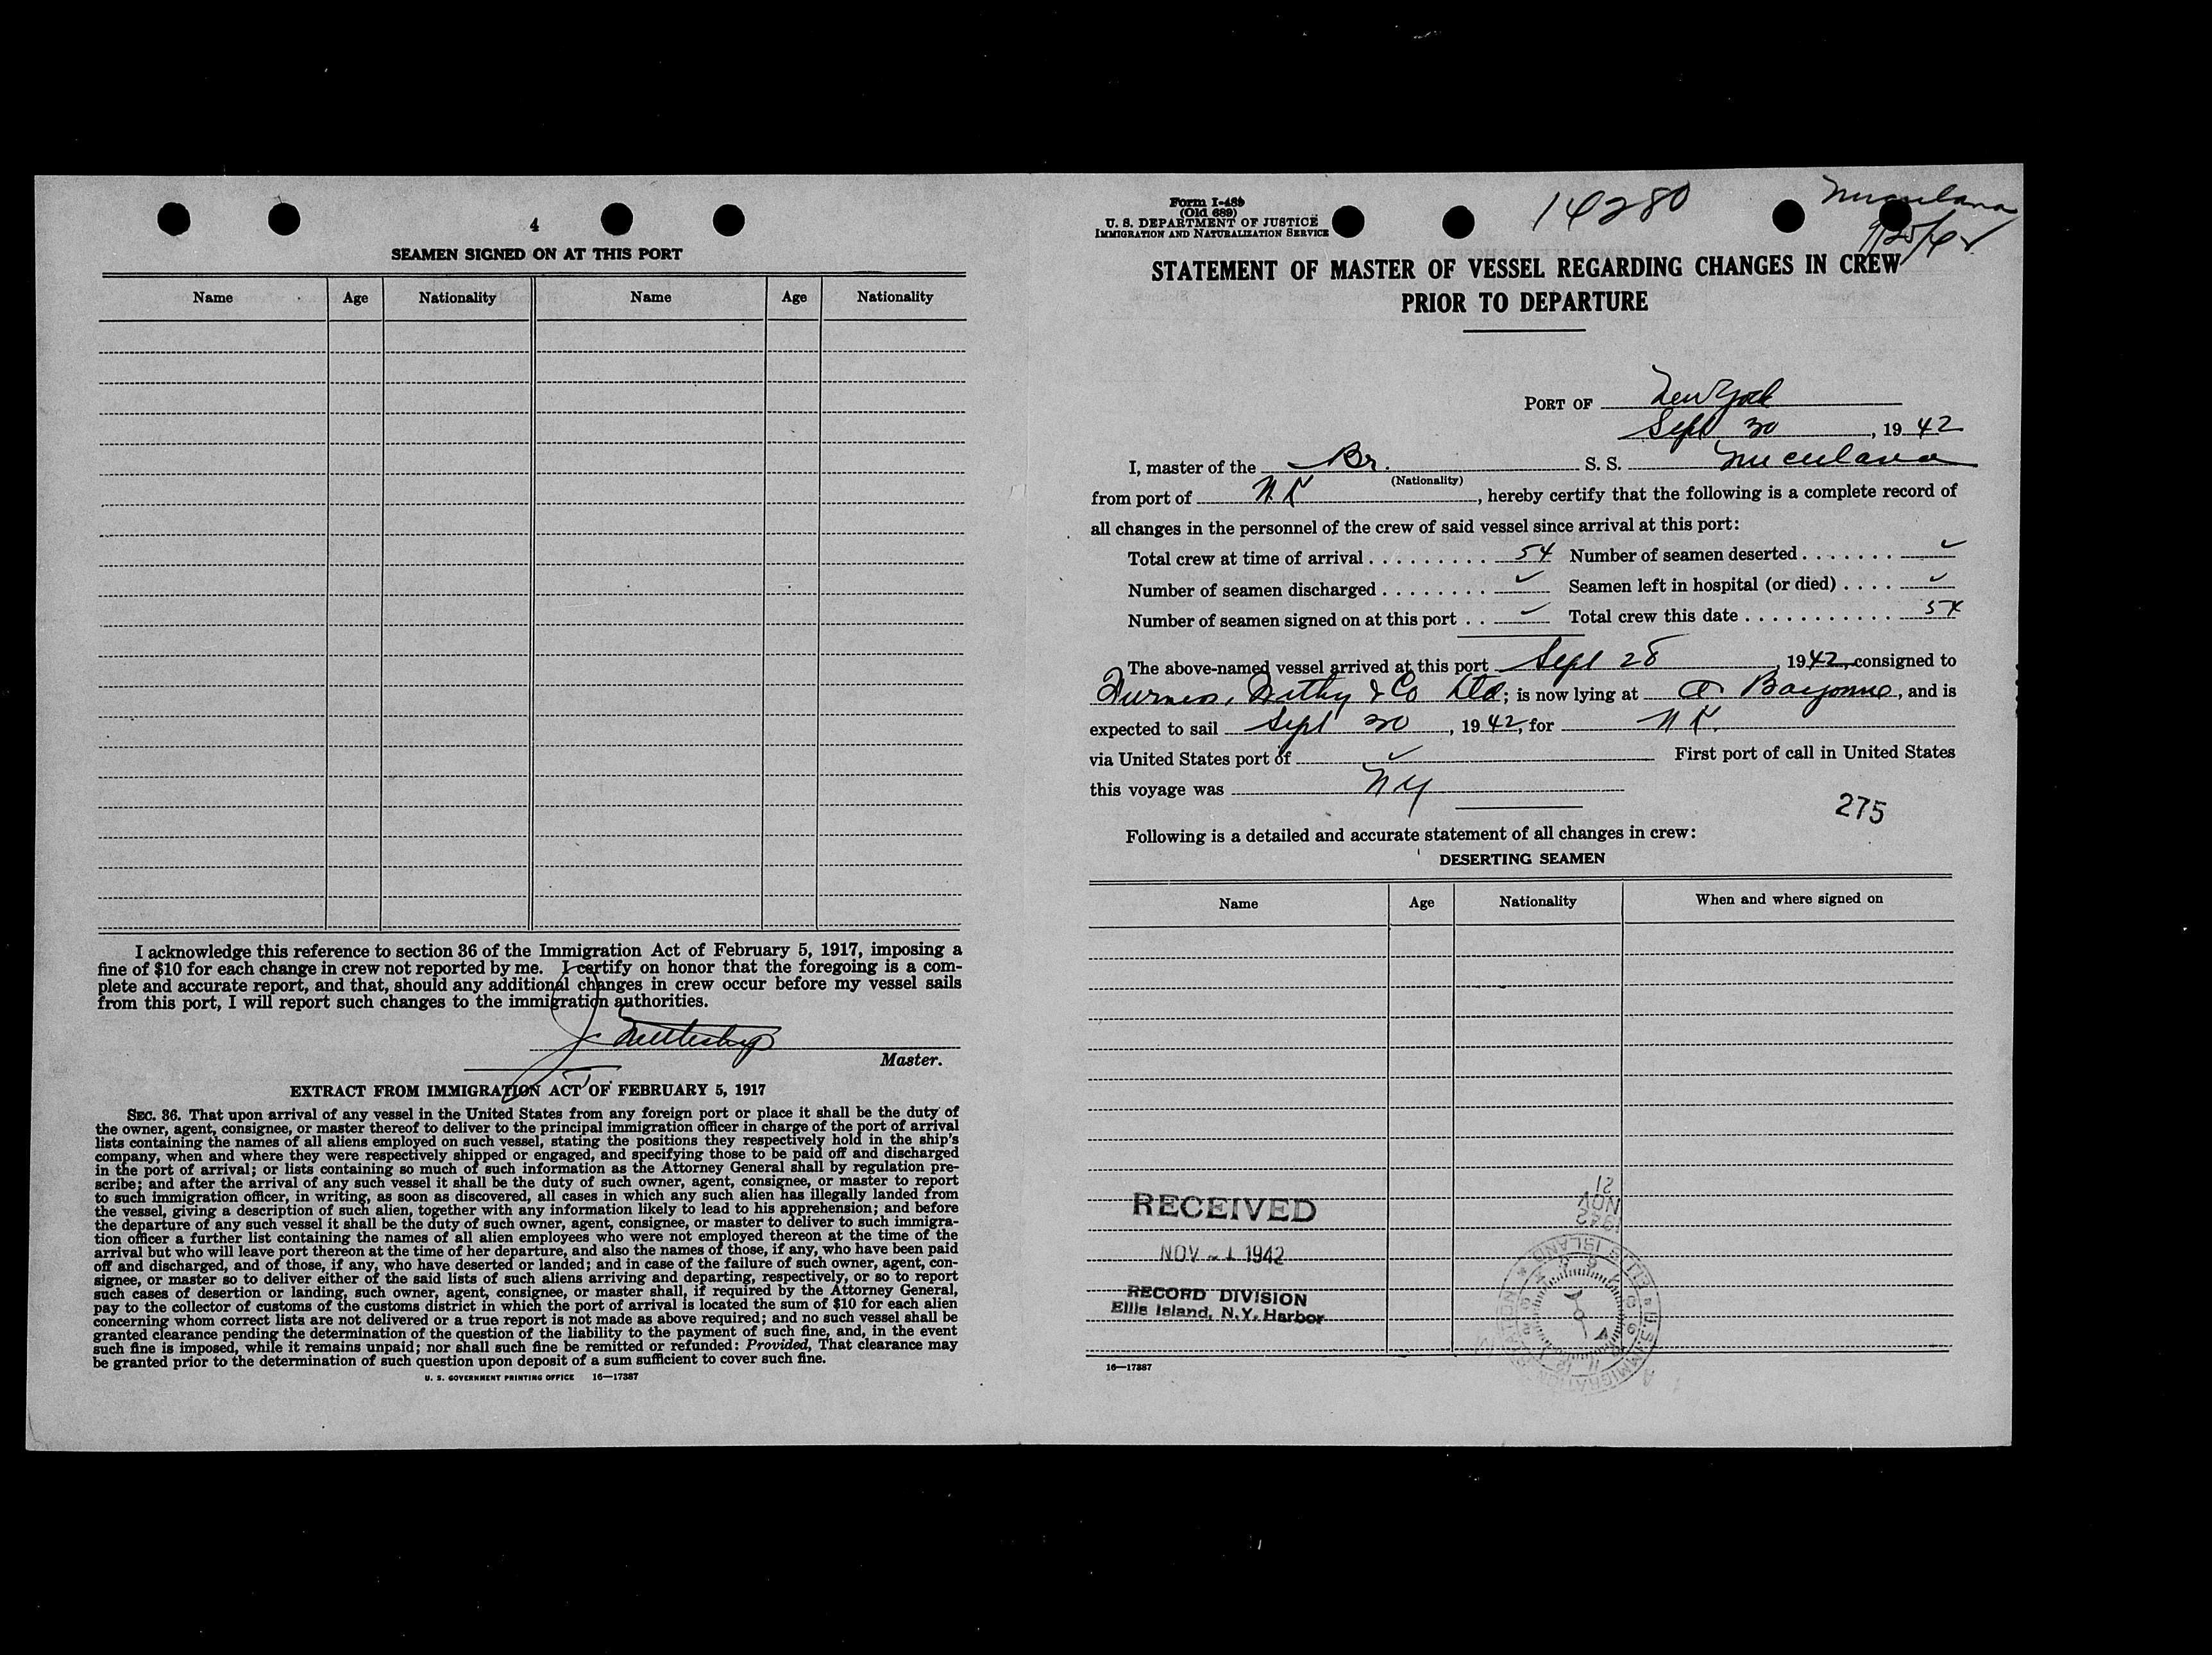 4
SEAMEN SIGNED ON AT THIS PORT
Name Age Nationality Name Age Nationality
I acknowledge this reference to section 36 of the Immigration Act of February 5, 1917, imposing a
fine of $10 for each change in crew not reported by me. I certify on honor that the foregoing is a com-
plete and accurate report, and that, should any additional changes in crew occur before my vessel sails
from this port, I will report such changes to the immigration authorities.
Master.
EXTRACT FROM IMMIGRATION ACT OF FEBRUARY 5, 1917
SEC. 36. That upon arrival of any vessel in the United States from any foreign port or place it shall be the duty of
the owner, agent, consignee, or master thereof to deliver to the principal immigration officer in charge of the port of arrival
lists containing the names of all aliens employed on such vessel, stating the positions they respectively hold in the ship's
company, when and where they were respectively shipped or engaged, and specifying those to be paid off and discharged
in the port of arrival; or lists containing so much of such information as the Attorney General shall by regulation pre-
scribe; and after the arrival of any such vessel it shall be the duty of such owner, agent, consignee, or master to report
to such immigration officer, in writing, as soon as discovered, all cases in which any such alien has illegally landed from
the vessel, giving a description of such alien, together with any information likely to lead to his apprehension; and before
the departure of any such vessel it shall be the duty of such owner, agent, consignee, or master to deliver to such immigra-
tion officer a further list containing the names of all alien employees who were not employed thereon at the time of the
arrival but who will leave port thereon at the time of her departure, and also the names of those, if any, who have been paid
off and discharged, and of those, if any, who have deserted or landed; and in case of the failure of such owner, agent, con-
signee, or master so to deliver either of the said lists of such aliens arriving and departing, respectively, or so to report
such cases of desertion or landing, such owner, agent, consignee, or master shall, if required by the Attorney General,
pay to the collector of customs of the customs district in which the port of arrival is located the sum of $10 for each alien
concerning whom correct lists are not delivered or a true report is not made as above required; and no such vessel shall be
granted clearance pending the determination of the question of the liability to the payment of such fine, and, in the event
such fine is imposed, while it remains unpaid; nor shall such fine be remitted or refunded: Provided, That clearance may
be granted prior to the determination of such question upon deposit of a sum sufficient to cover such fine.
U. S. GOVERNMENT PRINTING OFFICE 16—17387
Form I-489
(Old 689)
U. S. DEPARTMENT OF JUSTICE
IMMIGRATION AND NATURALIZATION SERVICE
14280
Miculana
STATEMENT OF MASTER OF VESSEL REGARDING CHANGES IN CREW
PRIOR TO DEPARTURE
PORT OF New York
Sept 30, 1942
I, master of the Br. S. S.
(Nationality)
from port of , hereby certify that the following is a complete record of
all changes in the personnel of the crew of said vessel since arrival at this port:
Total crew at time of arrival . . . . . . . . . . 54 Number of seamen deserted . . . . . . . ✓
Number of seamen discharged . . . . . . . . ✓ Seamen left in hospital (or died) . . . . ✓
Number of seamen signed on at this port . . ✓ Total crew this date . . . . . . . . . . . . 54
The above-named vessel arrived at this port Sept 28, 1942, consigned to
Furness, Withy & Co Ltd; is now lying at Bayonne, and is
expected to sail Sept 30, 1942, for
via United States port of ✓ First port of call in United States
this voyage was NY
275
Following is a detailed and accurate statement of all changes in crew:
DESERTING SEAMEN
Name Age Nationality When and where signed on
RECEIVED
NOV 21 1942
RECORD DIVISION
Ellis Island, N.Y. Harbor
21
NOV
1942
16—17387